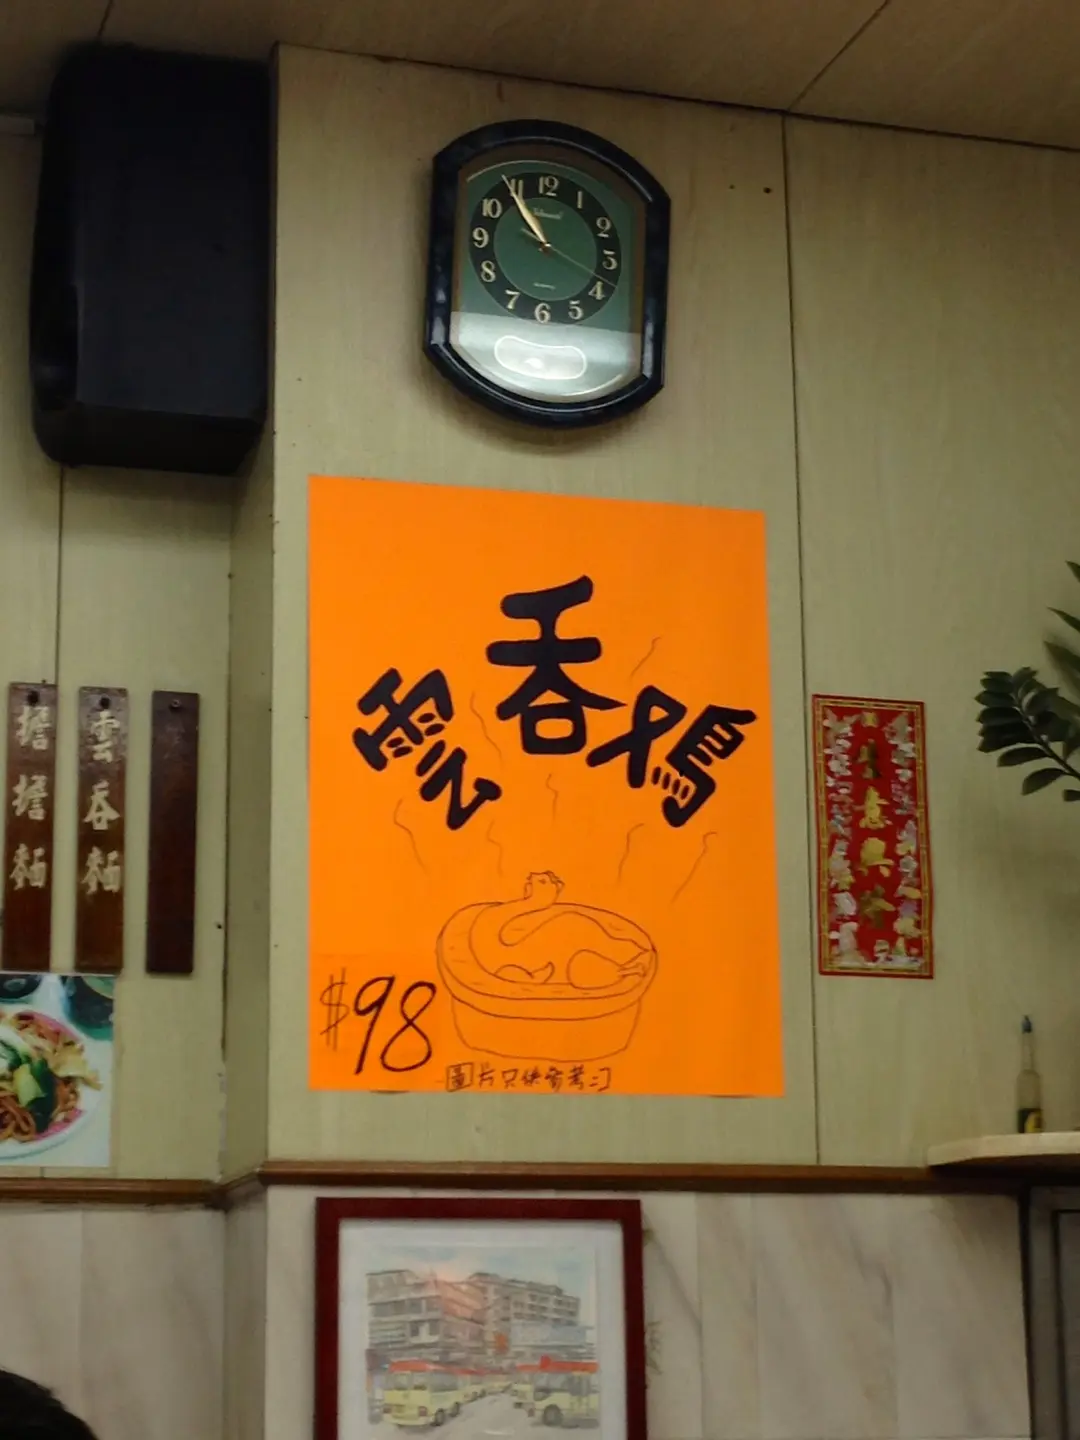 12
1
2
3
4
5
6
7
8
9
10
11
雲吞鸡
$98
圖片只供參考
擔擔麵
雲吞麵
生意興隆